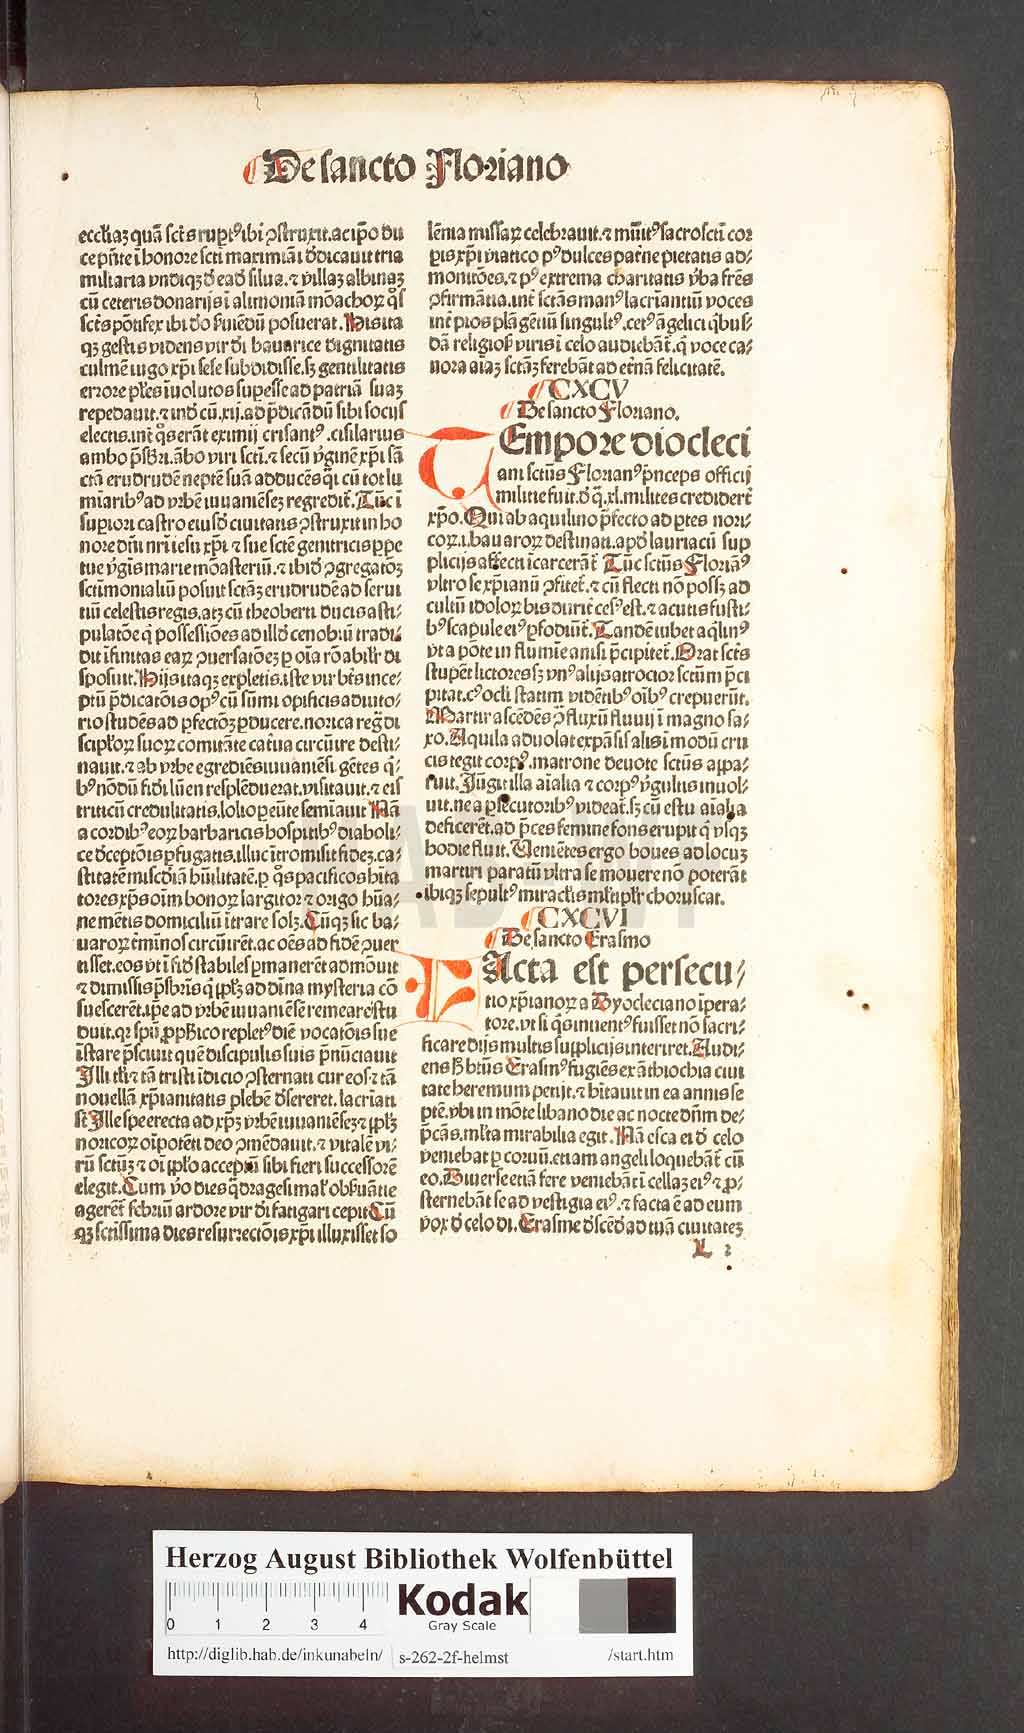 De sancto Floriano
eccl'iaꝫ quā sct̄s rupt⁹ ibi ꝯstruxit. ac ip̄o du
ce p̄n̄te ī honore sct̄i maximiāi d̓dicauit tria
miliaria vndiqꝫ d̓ ead̄ silua. ⁊ villaꝫ albinaꝫ
cū ceteris donarijs ī alimoniā mōachoꝝ q̄s
sct̄s pōtifex ibi d̓o ẜuiēdū posuerat. His ita
qꝫ gestis videns vir d̓i bauarice dignitatis
culmē iugo xp̄i sese subdidisse. sꝫ gentilitatis
errore pl̓es īuolutos sup̲esse ad patriā suaꝫ
repedauit. ⁊ ind̓ cū .xij. ad p̄dicādū sibi socijs
electis. int̓ q̄s erāt eximij crisant⁹. cisilarius
ambo p̄sbri. ābo viri sct̄i. ⁊ secū v̓ginē xp̄i sā
ctā erudrudē neptē suā adducēs q̄ cū tot lu
mīarib⁹ ad vrbē iuuaniēseꝫ regredit̓. Tūc ī
sup̲iori castro eiusd̓ ciuitatis ꝯstruxit in ho
nore dn̄i nr̄i iesu xp̄i ⁊ sue scte genitricis p̲pe
tue v̓gīs marie mōasteriū. ⁊ ibid̓ ꝯgregatōꝫ
sct̄imonialiū posuit sctāꝫ erudrudē ad serui
tiū celestis regis. atꝫ cū theoberti ducis asti-
pulatōe q̄ possessiōes ad illd̓ cenobiū tradi-
dit īfinitas eaꝝ ꝯuersatōeꝫ p̲ oīa rōabilr̄ di
sposuit. Hijs itaqꝫ expletis. iste vir bt̄s ince-
ptū p̄dicatōis op⁹ cū sūmi opificis adiuto-
rio studēs ad p̲fectōꝫ p̲ducere. norica reḡ di
scipl̓oꝝ suoꝝ comitāte cat̓ua circūire desti-
nauit. ⁊ ab vrbe egrediēs iuuaniēsi gētes q̄-
b⁹ nōdū fidi lūen resplēduerat. visitauit. ⁊ eis
triticū credulitatis. lolio p̲eūte semīauit Nā
a cordib⁹ eoꝝ barbaricis hospitib⁹ diaboli-
ce d̓ceptōis p̲fugatis. illuc ītromisit fideꝫ. ca-
stitatē mīscd̓iā hūilitatē. p̲ q̄s pacificos hīta
tores xp̄s oīm bonoꝝ largitor ⁊ origo hūa-
ne mētis domiciliū ītrare solꝫ. Cūqꝫ sic ba-
uaroꝝ t̓minos circūirēt. ac oēs ad fidē ꝯuer
tisset. eos vt ī fid̓ stabiles p̲manerēt admōuit
⁊ dimissis p̄sbris q̄ ppl̓ꝫ ad diīna mysteria cō
suescerēt. ip̄e ad vrbē iuuaniēsē remeare stu
duit. qꝛ spū ꝓph̓ico replet⁹ diē vocatōis sue
īstare p̄sciuit quē discipulis suis p̄nūciauit
Illi tl̓i ⁊ tā tristi īdicio ꝯsternati cur eos ⁊ tā
nouellā xp̄ianitatis plebē d̓sereret. lacrīati
st̄ Ille spe erecta ad xp̄ꝫ vrbē iuuaniēseꝫ ⁊ ppl̓ꝫ
noricoꝝ oīpotēti deo ꝯmēdauit. ⁊ vitalē vi-
rū sctūꝫ ⁊ oī ppl̓o acceptū sibi fieri successorē
elegit. Cum v̓o dies q̄dragesimal̓ obẜuātie
agerēt̓ febriū ardore vir d̓i fatigari cepit Cū
qꝫ sct̄issima dies resurrectōis xp̄i illuxisset so
lēnia missaꝝ celebrauit. ⁊ mūit⁹ sacrosct̄i cor
p̲is xp̄i viatico p⁹ dulces pat̓ne pietatis ad-
monitōes. ⁊ p⁹ extrema charitatis v̓ba fr̄es
ꝯfirmātia. int̓ sctās man⁹ lacriantiū voces
int̓ pios plāgētiū singult⁹. cet⁹ āgelici q̄bus-
dā religios̓ viris ī celo audiebāt̓. q̄ voce ca-
nora aīaꝫ sctāꝫ ferebāt ad et̓nā felicitatē.
CXCV
De sancto Floriano.
TEmpore diocleci
ani sctūs Florian⁹ p̄nceps officij
militie fuit. d̓ q̄ .xl. milites credider̄t
xp̄o. Qui ab aquilino p̄fecto ad p̲tes nori-
coꝝ .i. bauaroꝝ destinati. apd̓ lauriacū sup
plicijs affecti īcarcerāt̓ Tūc sctūs Florian⁹
vltro se xp̄ianū ꝯfitet̓. ⁊ cū flecti nō possꝫ ad
cultū idoloꝝ bis durit̓ ces⁹ est. ⁊ acutis fusti-
b⁹ scapule ei⁹ p̲fodiūt̓. Tandē iubet aq̄lin⁹
vt a pōte in flumīe anisi p̄cipitet̓. Orat sct̄s
stupēt lictores sꝫ vn⁹ alijs atrocior sctūm p̄ci
pitat. c⁹ ocl̓i statim vidētib⁹ oīb⁹ crepuerūt.
Martir ascēdēs p̲ fluxū fluuij ī magno sa-
xo. Aquila aduolat expāsis alis ī modū cru
cis tegit corp⁹. matrone deuote sctūs appa-
ruit. Jūgit illa aīalia ⁊ corp⁹ v̓gultis inuol-
uit. ne a p̲secutorib⁹ videat̓. sꝫ cū estu aīalia
deficerēt. ad p̄ces femine fons erupit q̄ vsqꝫ
hodie fluit. Veniētes ergo boues ad locuꝫ
martiri paratū vltra se mouere nō poterāt
ibiqꝫ sepult⁹ miracl̓is ml̓tiplr̄ choruscat.
CXCVI
De sancto Erasmo
FActa est persecu-
tio xp̄ianoꝝ a Dyocleciano īpera-
tore. vt si q̄s inuent⁹ fuisset nō sacri-
ficare dijs multis supplicijs interiret. Audi-
ens h̓ bt̄us Erasm⁹ fugiēs ex āthiochia ciui
tate heremum petijt. ⁊ hītauit in ea annis se
ptē. vbi in mōte libano die ac nocte dn̄m de-
p̄cās. ml̓ta mirabilia egit. Nā esca ei d̓ celo
veniebat p̲ coruū. etiam angeli loquebāt̓ cū
eo. Diuerse etiā fere veniebāt ī cellaꝫ ei⁹ ⁊ ꝓ-
sternebāt se ad vestigia ei⁹. ⁊ facta ē ad eum
vox d̓ celo di. Erasme d̓scēd̓ ad tuā ciuitateꝫ
L 2
Herzog August Bibliothek Wolfenbüttel
0 1 2 3 4
Kodak
Gray Scale
http://diglib.hab.de/inkunabeln/ s-262-2f-helmst /start.htm
HAB WF